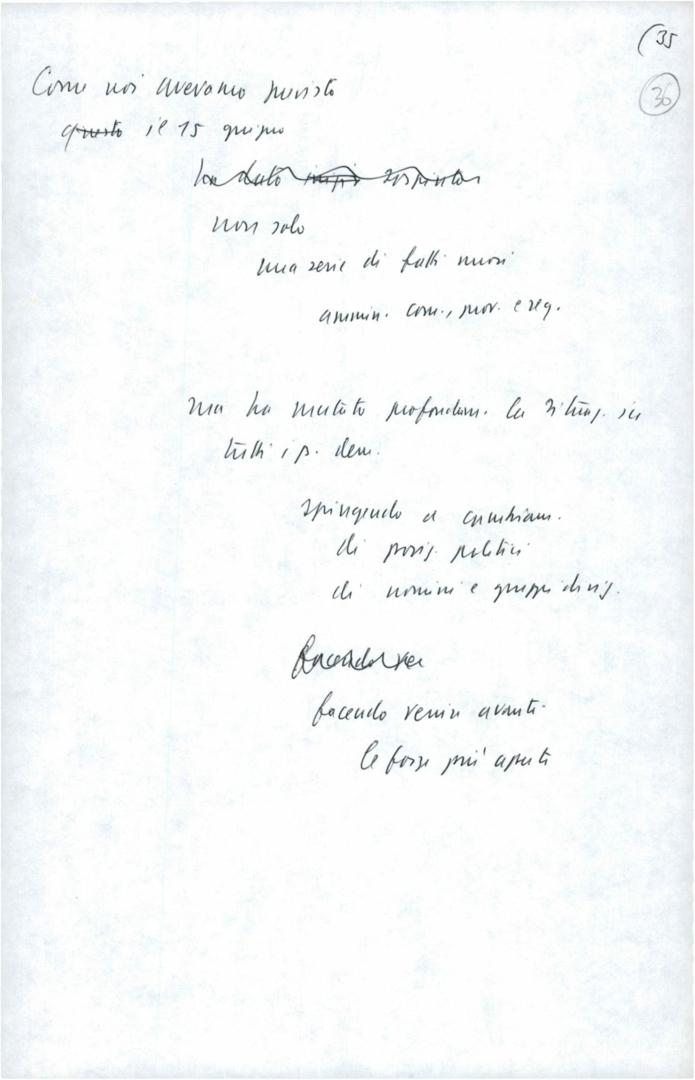 (35
36
Come noi avevamo previsto
questo il 15 giugno
ha dato sospinto
non solo
una serie di fatti nuovi
ammin. com., prov. e reg.
ma ha mutato profondam. la situaz. in
tutti i p. dem.
spingendo a cambiam.
di posiz. politici
di uomini e gruppi dirig.
facendo ve
facendo venire avanti
le forze più aperte